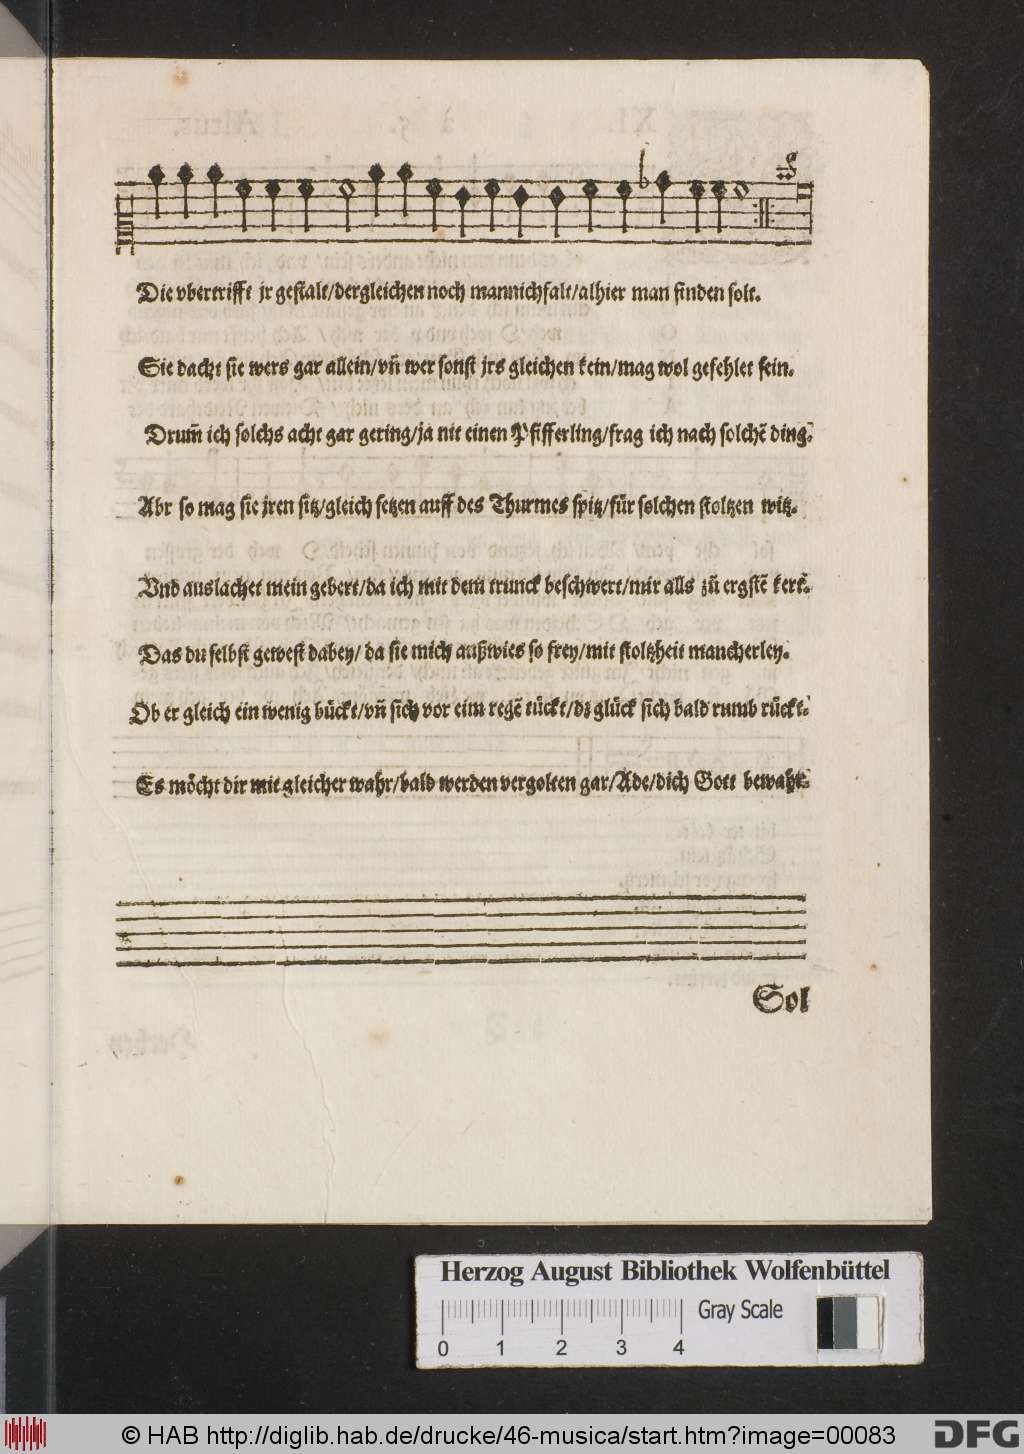 Die vbertrifft jr gestalt/dergleichen noch mannichfalt/alhier man finden solt.
Sie dacht sie wers gar allein/vn̄ wer sonst jrs gleichen kein/mag wol gefehlet sein.
Drum̄ ich solchs acht gar gering/ja nit einen Pfifferling/frag ich nach solchē ding.
Abr so mag sie jren sitz/gleich setzen auff des Thurmes spitz/für solchen stoltzen witz.
Vnd auslachet mein gebert/da ich mit dem trunck beschwert/mir alls zū ergstē kert.
Das du selbst gewest dabey/ da sie mich außwies so frey/mit stoltzheit mancherley.
Ob er gleich ein wenig bückt/vn̄ sich vor eim regē tückt/dz glück sich bald rumb rückt.
Es möcht dir mit gleicher wahr/bald werden vergolten gar/Ade/dich Gott bewahr.
Sol
Herzog August Bibliothek Wolfenbüttel
Gray Scale
0 1 2 3 4
© HAB http://diglib.hab.de/drucke/46-musica/start.htm?image=00083
DFG